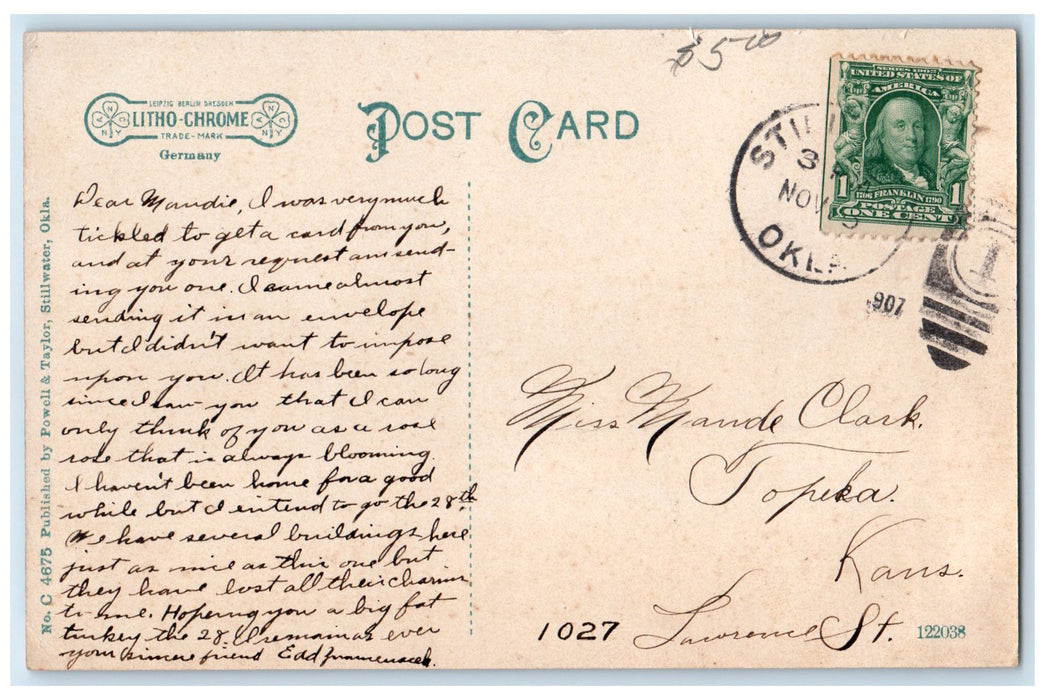 $5.00
LEIPZIG BERLIN DRESDEN
LITHO-CHROME
TRADE-MARK
ANNY
ANNY
Germany
POST CARD
SERIES 1902
UNITED STATES OF
AMERICA
1 1
1706 FRANKLIN 1790
POSTAGE
ONE CENT
STILL
3
NOV
OKLA
907
1
No. C 4675 Published by Powell & Taylor, Stillwater, Okla.
Dear Maudie, I was very much
tickled to get a card from you,
and at your request am send-
ing you one. I came almost
sending it in an envelope
but I didn't want to impose
upon you. It has been so long
since I saw you that I can
only think of you as a rose
rose that is always blooming.
I haven't been home for a good
while but I intend to go the 28th
We have several buildings here
just as nice as this one but
they have lost all their charm
to me. Hopeing you a big fat
turkey the 28. I remain as ever
your sincere friend Edd
Miss Maude Clark.
Topeka.
Kans.
1027 Lawrence St. 122038